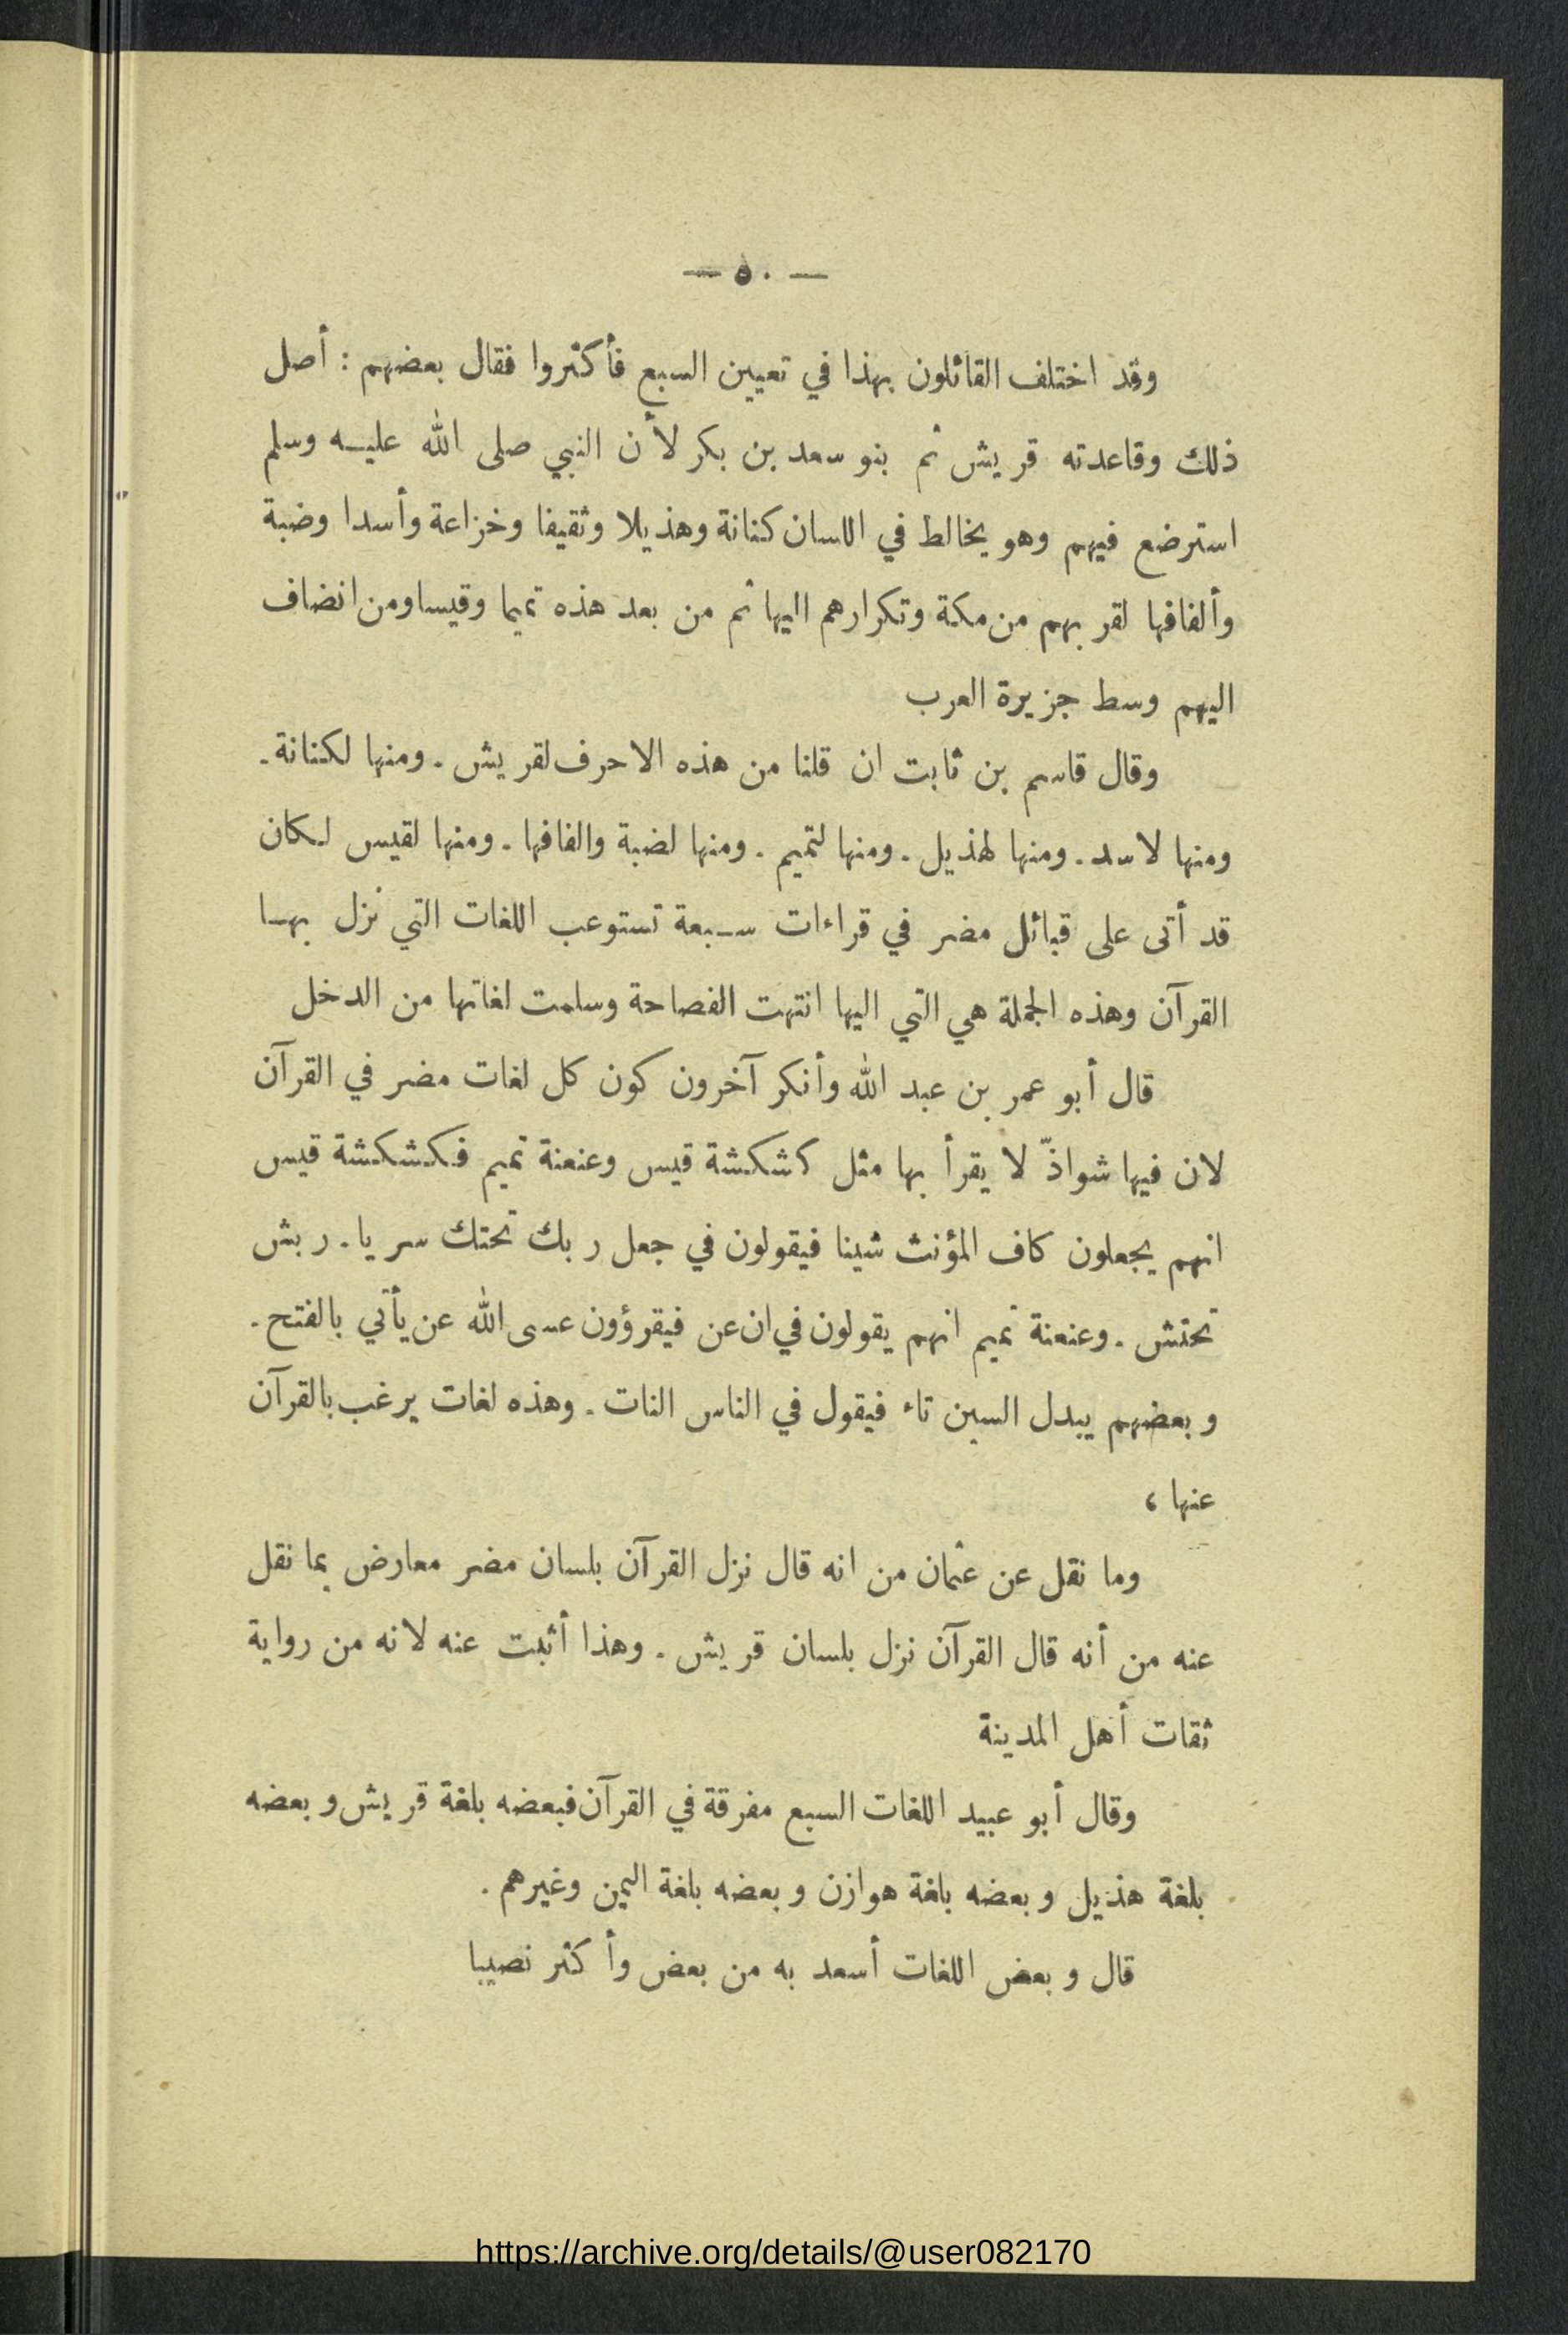 — ٥٠ —
وقد اختلف القائلون بهذا في تعيين السبع فأكثروا فقال بعضهم : أصل
ذلك وقاعدته قريش ثم بنو سعد بن بكر لأن النبي صلى الله عليه وسلم
استرضع فيهم وهو يخالط في اللسان كنانة وهذيلا وثقيفا وخزاعة وأسدا وضبة
وألفافها لقربهم من مكة وتكرارهم اليها ثم من بعد هذه تميما وقيسا ومن انضاف
اليهم وسط جزيرة العرب
وقال قاسم بن ثابت ان قلنا من هذه الاحرف لقريش . ومنها لكنانة .
ومنها لاسد . ومنها لهذيل . ومنها لتميم . ومنها لضبة والفافها . ومنها لقيس لكان
قد أتى على قبائل مضر في قراءات سبعة تستوعب اللغات التي نزل بها
القرآن وهذه الجملة هي التي اليها انتهت الفصاحة وسلمت لغاتها من الدخل
قال أبو عمر بن عبد الله وأنكر آخرون كون كل لغات مضر في القرآن
لان فيها شواذّ لا يقرأ بها مثل كشكشة قيس وعنعنة تميم فكشكشة قيس
انهم يجعلون كاف المؤنث شينا فيقولون في جعل ربك تحتك سريا . ربش
تحتش . وعنعنة تميم انهم يقولون في ان عن فيقرؤون عسى الله عن يأتي بالفتح .
وبعضهم يبدل السين تاء فيقول في الناس النات . وهذه لغات يرغب بالقرآن
عنها ،
وما نقل عن عثمان من انه قال نزل القرآن بلسان مضر معارض بما نقل
عنه من أنه قال القرآن نزل بلسان قريش . وهذا أثبت عنه لانه من رواية
ثقات أهل المدينة
وقال أبو عبيد اللغات السبع مفرقة في القرآن فبعضه بلغة قريش وبعضه
بلغة هذيل وبعضه بلغة هوازن وبعضه بلغة اليمن وغيرهم .
قال وبعض اللغات أسعد به من بعض وأكثر نصيبا
https://archive.org/details/@user082170